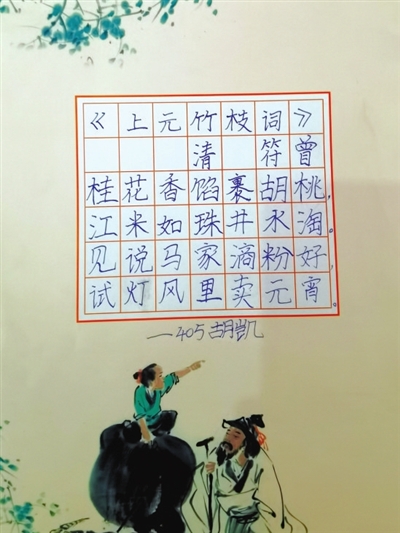 《上元竹枝词》
清 符曾
桂花香馅裹胡桃，
江米如珠井水淘。
见说马家滴粉好，
试灯风里卖元宵。
—405胡凯